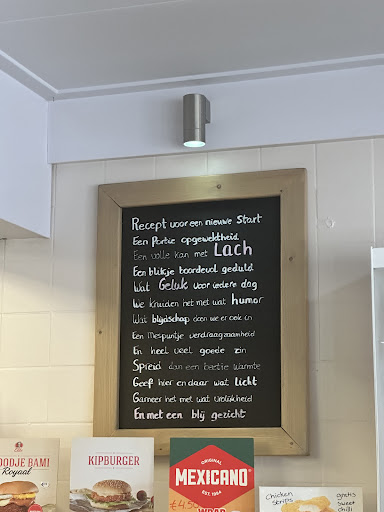 Recept voor een nieuwe Start
Een Portie opgewektheid
Een volle kan met Lach
Een blikje boordevol geduld
Wat Geluk voor iedere dag
We kruiden het met wat humor
Wat blijdschap doen we er ook in
Een mespuntje verdraagzaamheid
En heel veel goede zin
Spreid dan een beetje warmte
Geef hier en daar wat licht
Garneer het met wat vrolijkheid
En met een blij gezicht
OODJE BAMI
Royaal
KIPBURGER
ORIGINAL
MEXICANO
EST. 1984
€4.50
WRAP
Chicken
strips
gratis
Sweet
chilli